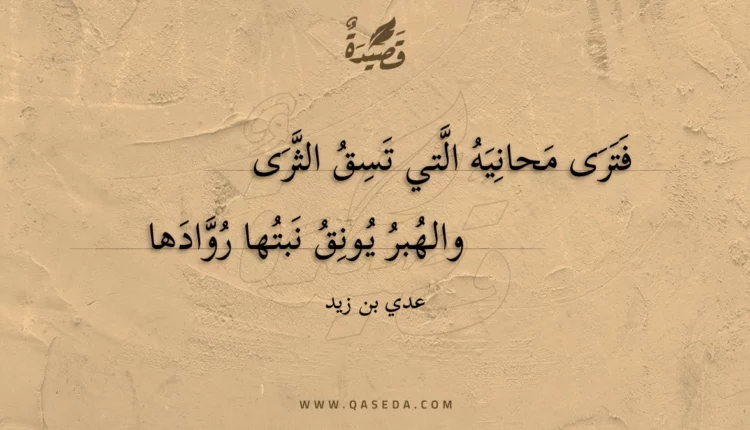 قَصِيدَةٌ
فَتَرَى مَحانِيَهُ الَّتي تَسِقُ الثَّرَى
والهُبرُ يُونِقُ نَبتُها رُوَّادَها
عدي بن زيد
WWW.QASEDA.COM